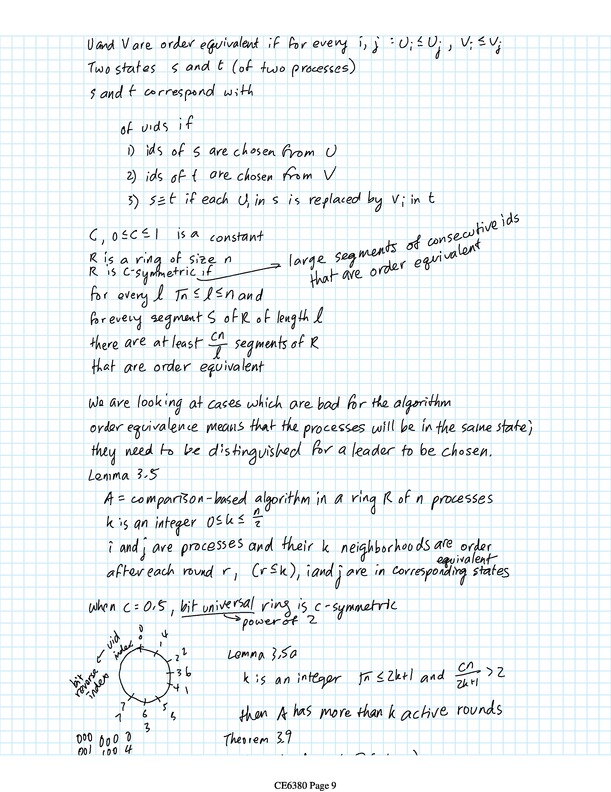 U and V are order equivalent if for every i, j : Ui ≤ Uj , Vi ≤ Vj
Two states s and t (of two processes)
s and t correspond with
of uids if
1) ids of s are chosen from U
2) ids of t are chosen from V
3) s≡t if each Ui in s is replaced by Vi in t
C, 0≤C≤1 is a constant
R is a ring of size n
R is C-symmetric if → large segments of consecutive ids
that are order equivalent
for every l √n ≤ l ≤ n and
for every segment S of R of length l
there are at least cn/l segments of R
that are order equivalent
We are looking at cases which are bad for the algorithm
order equivalence means that the processes will be in the same state;
they need to be distinguished for a leader to be chosen.
Lemma 3.5
A = comparison-based algorithm in a ring R of n processes
k is an integer 0≤k≤ n/2
i and j are processes and their k neighborhoods are order
equivalent
after each round r, (r≤k), i and j are in corresponding states
when c = 0.5, bit universal ring is c-symmetric
→ power of 2
← uid
index
bit
reverse
index
0
0
1 4
2 2
3 6
4 1
5
5
6
3
7
7
Lemma 3.5a
k is an integer √n ≤ 2k+1 and cn/2k+1 > 2
then A has more than k active rounds
000 000 0
001 100 4
Theorem 3.9
CE6380 Page 9